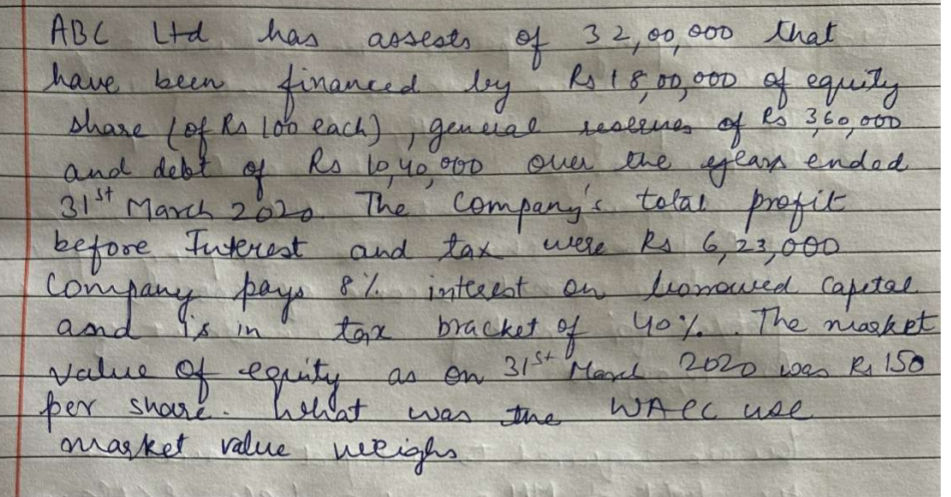 ABC Ltd has assests of 32,00,000 that
have been financed by Rs 18,00,000 of equity
share (of Rs 100 each), general reserves of Rs 3,60,000
and debt of Rs 10,40,000 over the years ended
31st March 2020. The Company's total profit
before Interest and tax were Rs 6,23,000
Company pays 8% interest on borrowed capital
and is in tax bracket of 40%. The market
value of equity as on 31st March 2020 was Rs 150
per share. What was the WACC use
market value weighs